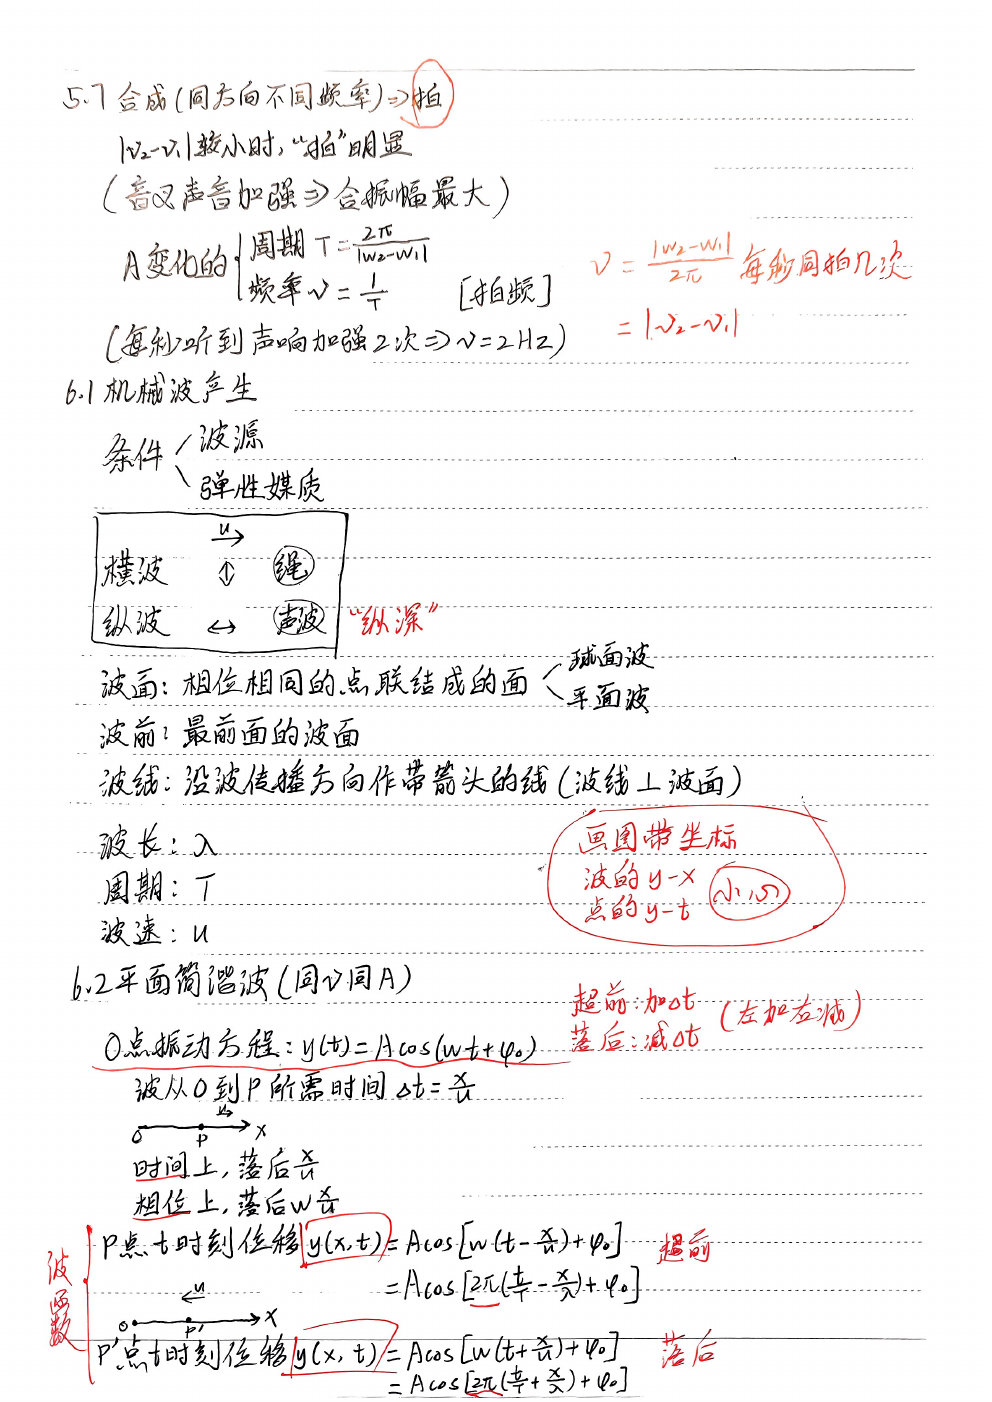 5.7 合成(同方向不同频率)⇒拍
|ν₂-ν₁|较小时,"拍"明显
(音叉声音加强⇒合振幅最大)
A变化的{周期 T=2π/|w₂-w₁|
频率 ν=1/T [拍频]
ν=|w₂-w₁|/2π 每秒同拍几次
=|ν₂-ν₁|
(每秒听到声响加强2次⇒ν=2Hz)
6.1 机械波产生
条件 波源
弹性媒质
u→
横波 ↕ 绳
纵波 ↔ 声波 "纵深"
波面: 相位相同的点联结成的面 球面波
平面波
波前: 最前面的波面
波线: 沿波传播方向作带箭头的线(波线⊥波面)
波长: λ
周期: T
波速: u
画图带坐标
波的 y-x
点的 y-t
6.2 平面简谐波(同ν同A)
超前:加Δt
落后:减Δt (左加右减)
O点振动方程: y(t)=Acos(wt+φ₀)
波从O到P所需时间 Δt=x/u
u→
O P x
时间上,落后x/u
相位上,落后w x/u
波函数
P点t时刻位移 y(x,t)=Acos[w(t-x/u)+φ₀] 超前
=Acos[2π(t/T-x/λ)+φ₀]
←u
O P' x
P'点t时刻位移 y(x,t)=Acos[w(t+x/u)+φ₀] 落后
=Acos[2π(t/T+x/λ)+φ₀]